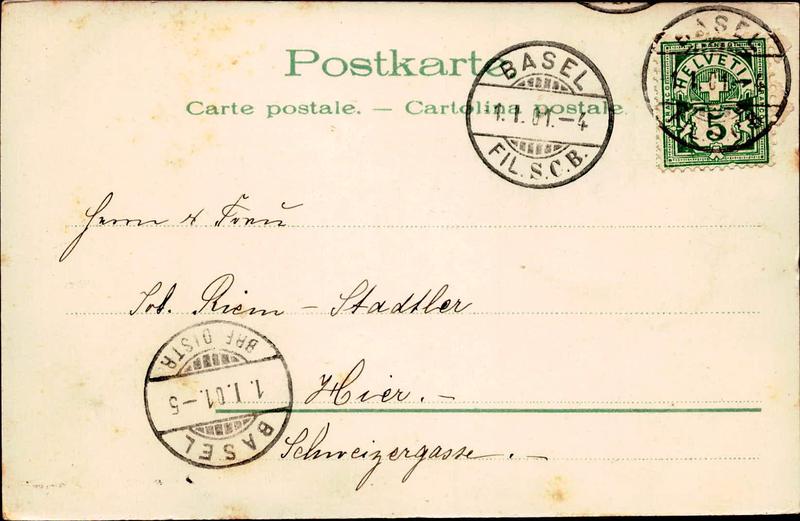 Postkarte
Carte postale. — Cartolina postale.
BASEL
1.I.01.–4
FIL. S.C.B.
BASEL
HELVETIA
5
Herrn & Frau
Riem – Stadtler
Hier. –
Schweizergasse. –
BRF. DISTR.
1.I.01.–5
BASEL